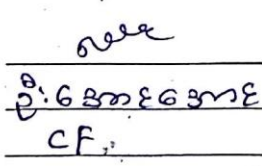 ဦးအောင်အောင်
CF,